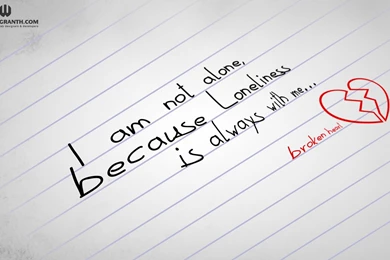 GRANTH.COM
I am not alone,
because Loneliness
is always with me...
broken heart